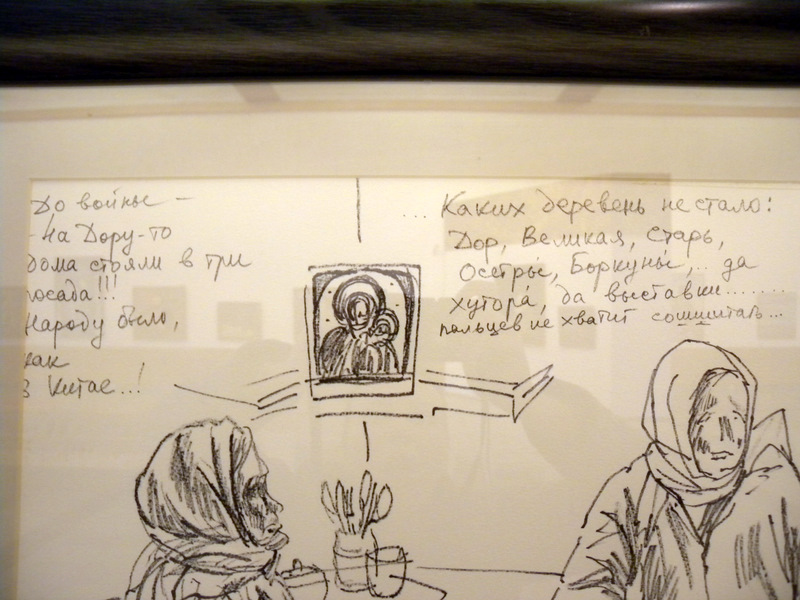 До войны –
– На Дору-то
дома стояли в три
посада!!!
Народу было,
как
в Китае...!
... Каких деревень не стало:
Дор, Великая, Старь,
Осетры́, Боркуны́,.. да
хутора́, да выставки........
пальцев не хватит сошшитать...